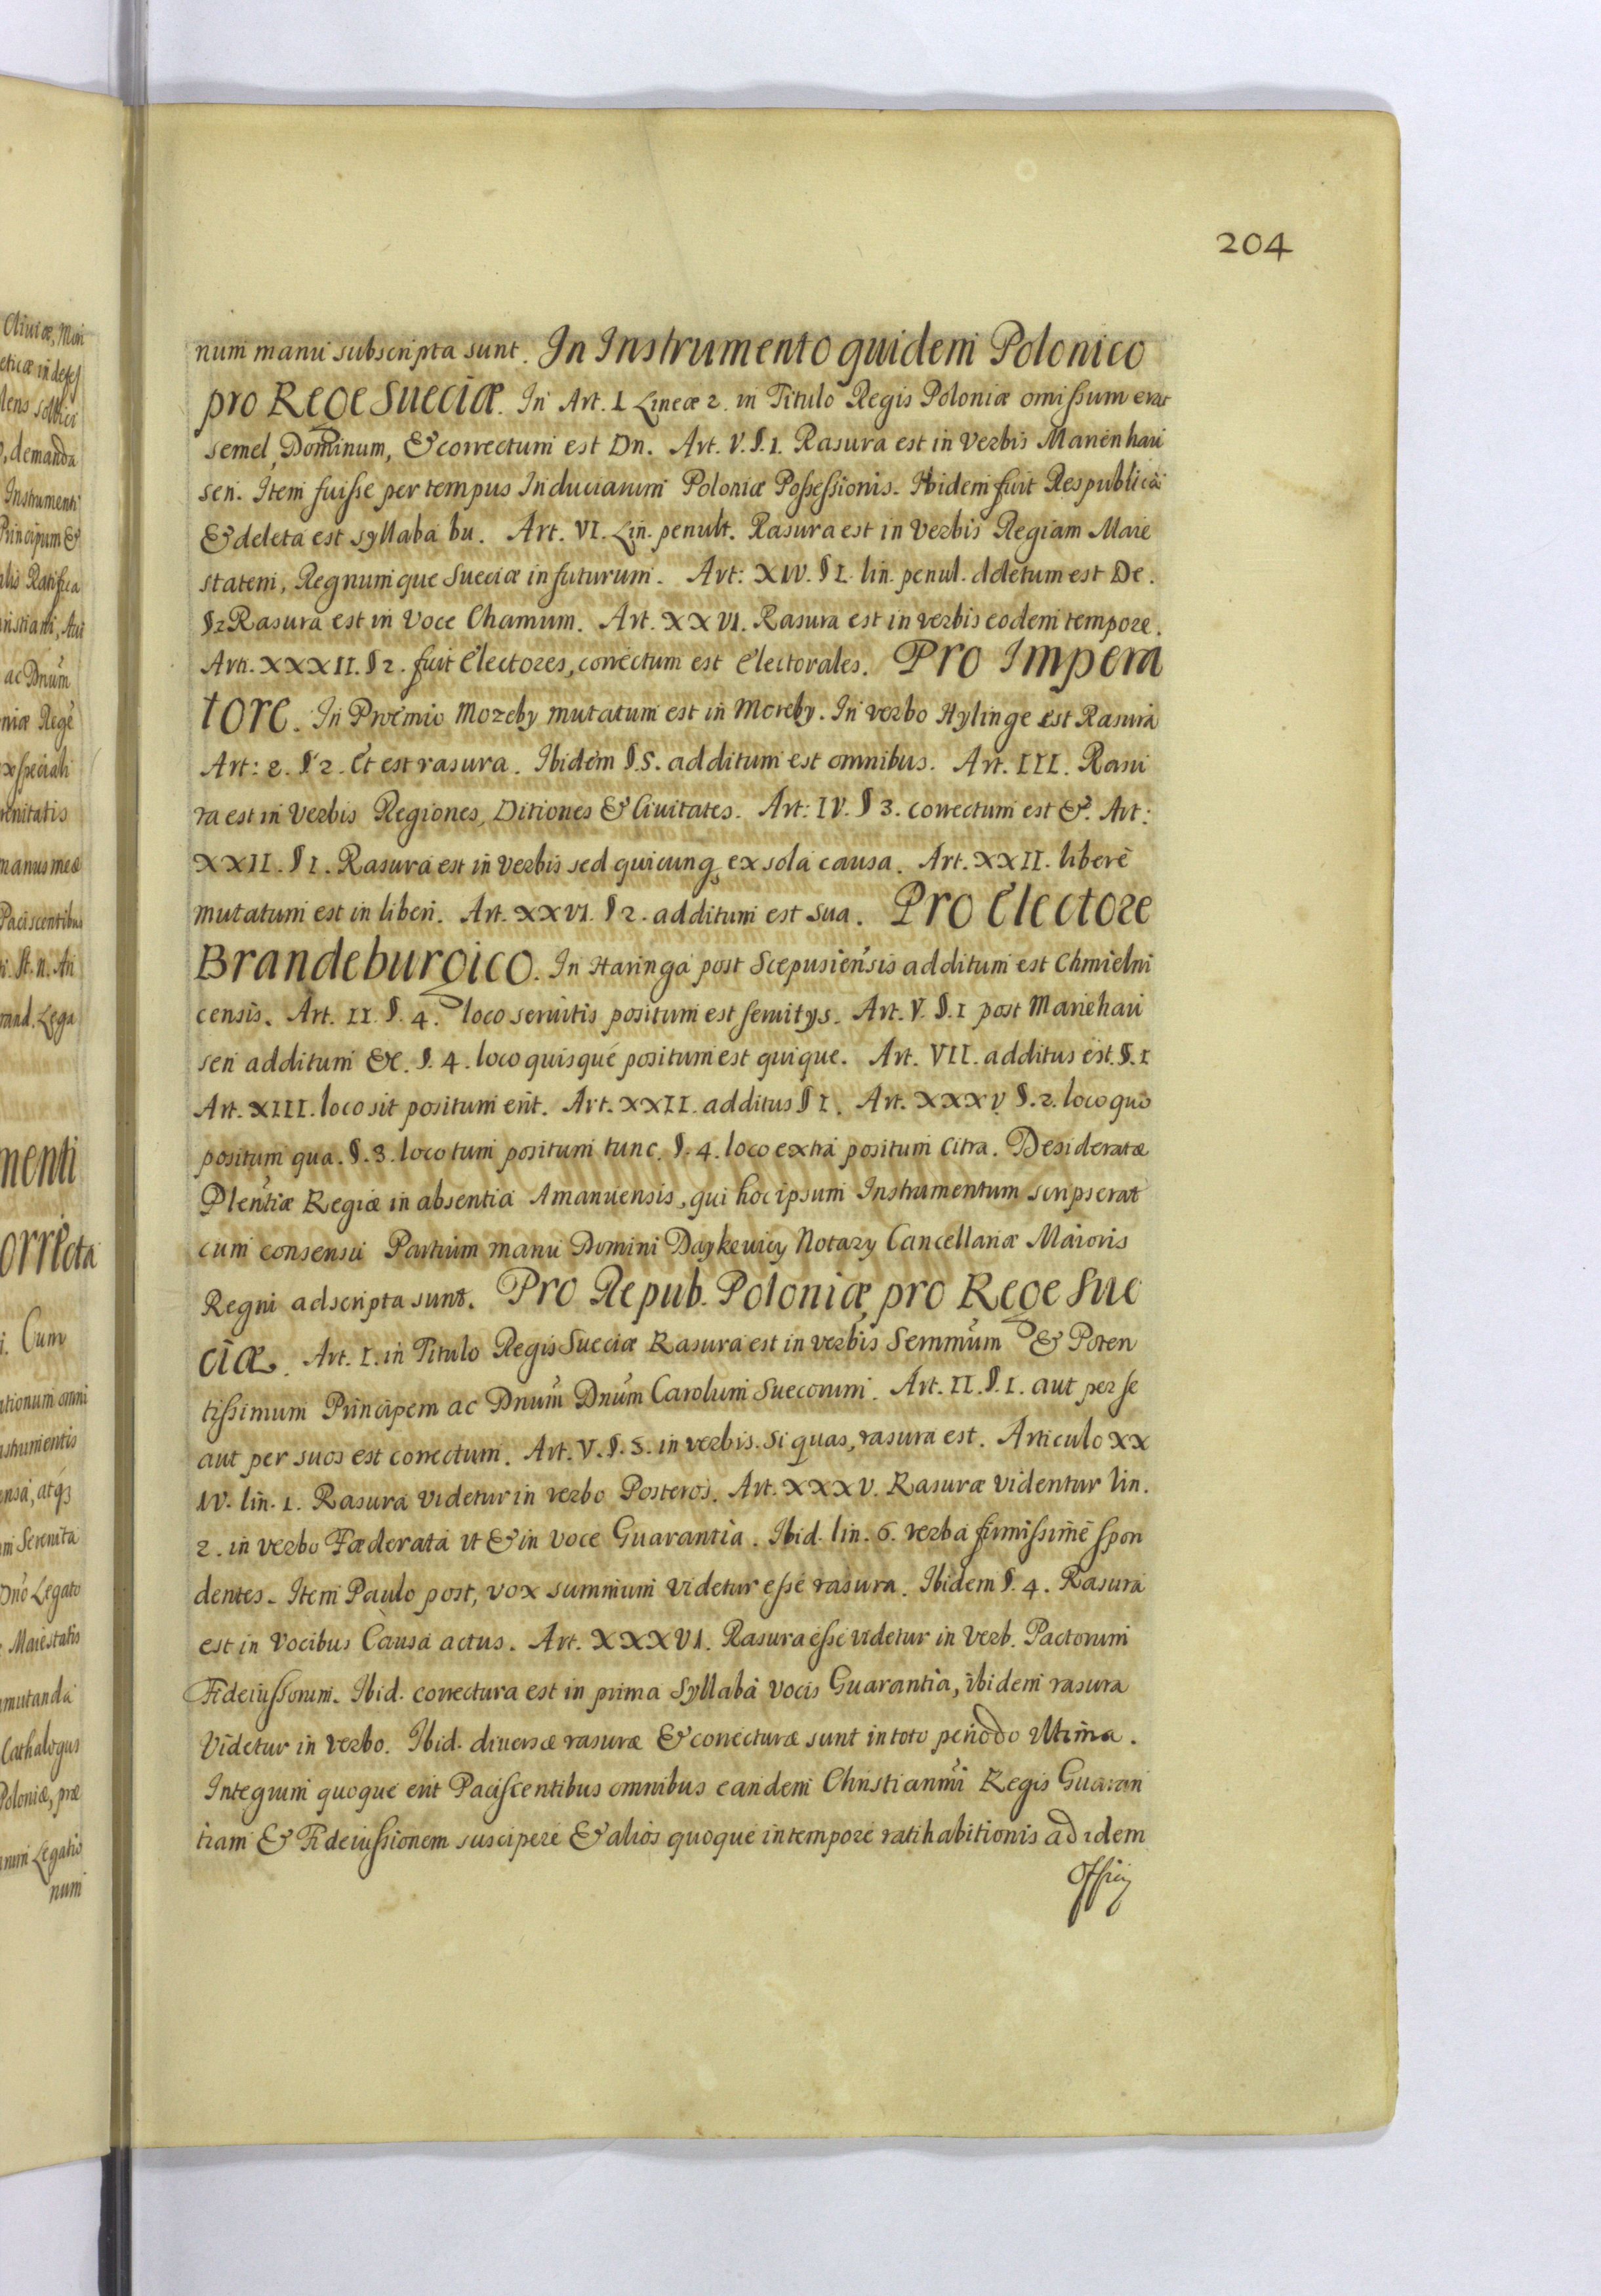 204
num manu subscripta sunt. In Instrumento quidem Polonico
pro Rege Sueciæ. In Art. I Lineæ 2. in Titulo Regis Poloniæ omissum erat
semel, Dominum, & correctum est Dn. Art. V. §. 1. Rasura est in verbis Marienhau
sen. Item fuisse per tempus Induciarum Poloniæ Possessionis. Ibidem fuit Respublica
& deleta est syllaba bu. Art. VI. Lin. penult. Rasura est in verbis Regiam Maie
statem, Regnumque Sueciæ in futurum. Art: XIV. § I. lin. penul. deletum est De.
§ 2 Rasura est in voce Chamum. Art. XXVI. Rasura est in verbis eodem tempore.
Art. XXXII. § 2. fuit Electores, correctum est Electorales. Pro Impera
tore. In Proemio Mozeby mutatum est in Moreby. In verbo Hylinge est Rasura
Art: 2. § 2. Et est rasura. Ibidem §. 5. additum est omnibus. Art. III. Rasu
ra est in verbis Regiones, Ditiones & Ciuitates. Art: IV. § 3. correctum est &. Art:
XXII. § I. Rasura est in verbis sed quicunq ex sola causa. Art. XXII. libere
mutatum est in liberi. Art. XXVI. § 2. additum est sua. Pro Electore
Brandeburgico. In Haringa post Scepusiensis additum est Chmielni
censis. Art. II. §. 4. loco seruitis positum est seruitys. Art. V. §. I post Mariehau
sen additum &c. §. 4. loco quisque positum est quique. Art. VII. additus est. §. I
Art. XIII. loco sit positum erit. Art. XXII. additus § I. Art. XXXV. §. 2. loco quo
positum qua. §. 3. loco tum positum tunc. §. 4. loco extra positum citra. Desideratæ
Plentiæ Regiæ in absentia Amanuensis, qui hoc ipsum Instrumentum scripserat
cum consensu Partium manu Domini Daykewicy Notary Cancellariæ Maioris
Regni adscripta sunt. Pro Repub. Poloniæ, pro Rege Sue
ciæ. Art. I. in Titulo Regis Sueciæ Rasura est in verbis Semmum & Poten
tissimum Principem ac Dnum Dnum Carolum Suecorum. Art. II. §. I. aut per se
aut per suos est correctum. Art. V. §. 5. in verbis. Si quas, rasura est. Articulo XX
IV. lin. 1. Rasura videtur in verbo Posteros. Art. XXXV. Rasuræ videntur lin.
2. in verbo Fæderata ut & in voce Guarantia. Ibid. lin. 6. verba firmissime spon
dentes. Item Paulo post, vox summum videtur esse rasura. Ibidem §. 4. Rasura
est in vocibus Causa actus. Art. XXXVI. Rasura esse videtur in verb. Pactorum
Fideiussorum. Ibid. correctura est in prima Syllaba vocis Guarantia, ibidem rasura
videtur in verbo. Ibid. diuersæ rasuræ & correcturæ sunt in toto periodo ultima.
Integrum quoque erit Paciscentibus omnibus eandem Christianmi Regis Guaran
tiam & Fideiussionem suscipere & alios quoque in tempore ratihabitionis ad idem
Officy